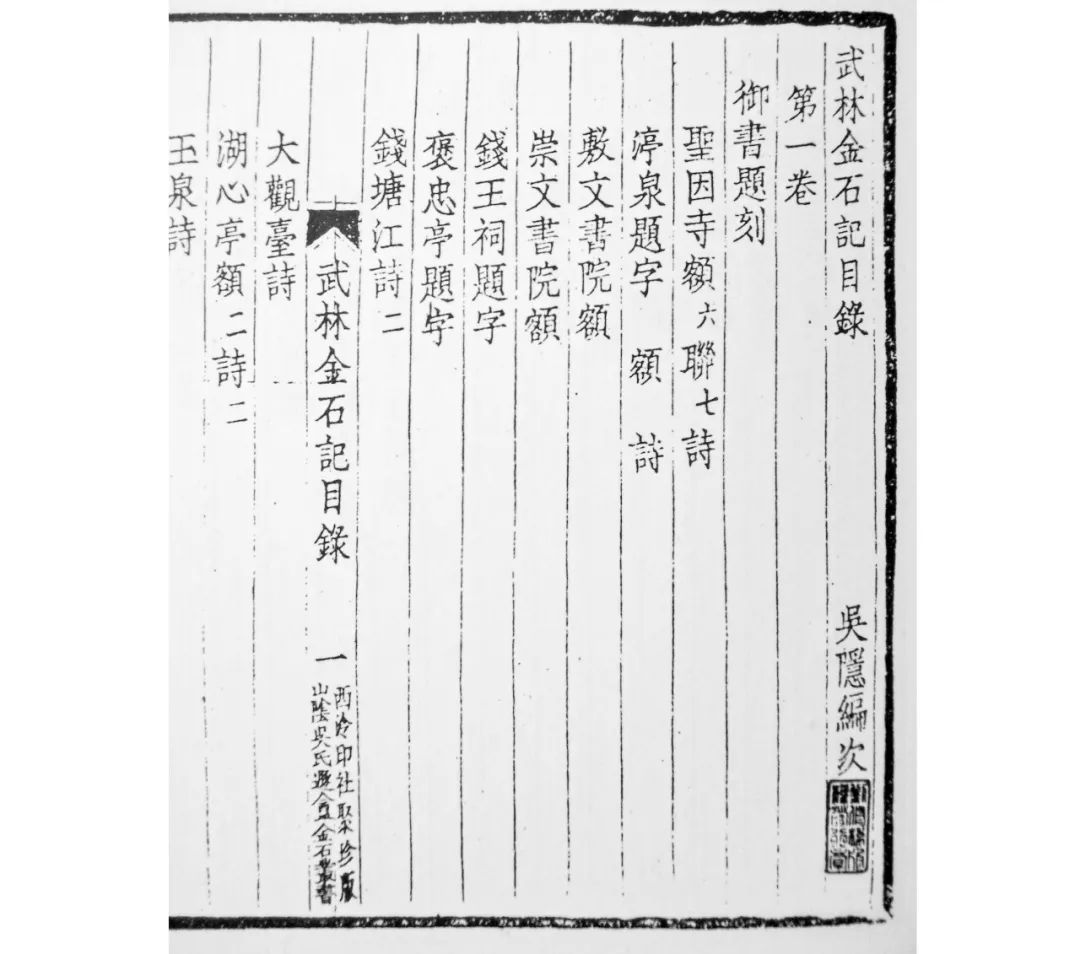 武林金石記目錄 吳隱編次
第一卷
御書題刻
聖因寺額六聯七詩
渟泉題字 額 詩
敷文書院額
崇文書院額
錢王祠題字
褒忠亭題字
錢塘江詩二
武林金石記目錄 一 西泠印社聚珍版
山陰吳氏遯盦金石叢書
大觀臺詩
湖心亭額二詩二
玉泉詩